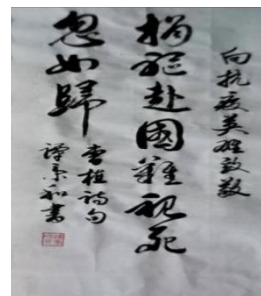 向抗疫英雄致敬
捐軀赴國難視死
忽如歸
曹植詩句
譚京和書